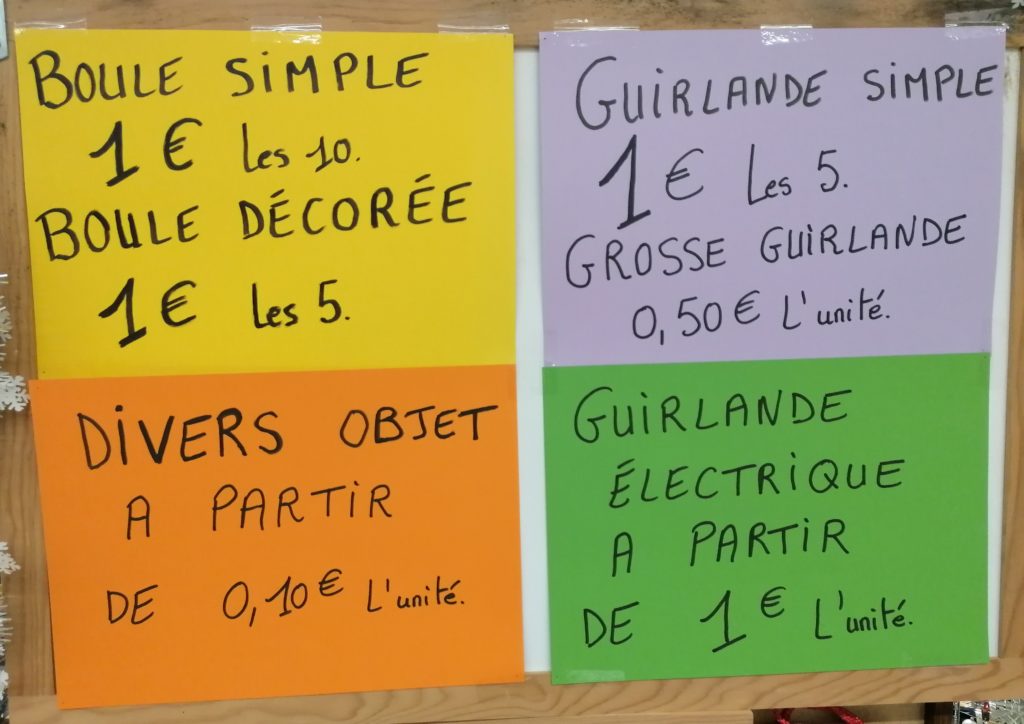 BOULE SIMPLE
1 € Les 10.
BOULE DÉCORÉE
1 € Les 5.
GUIRLANDE SIMPLE
1 € Les 5.
GROSSE GUIRLANDE
0,50 € L'unité.
DIVERS OBJET
A PARTIR
DE 0,10 € L'unité.
GUIRLANDE
ÉLECTRIQUE
A PARTIR
DE 1 € L'unité.